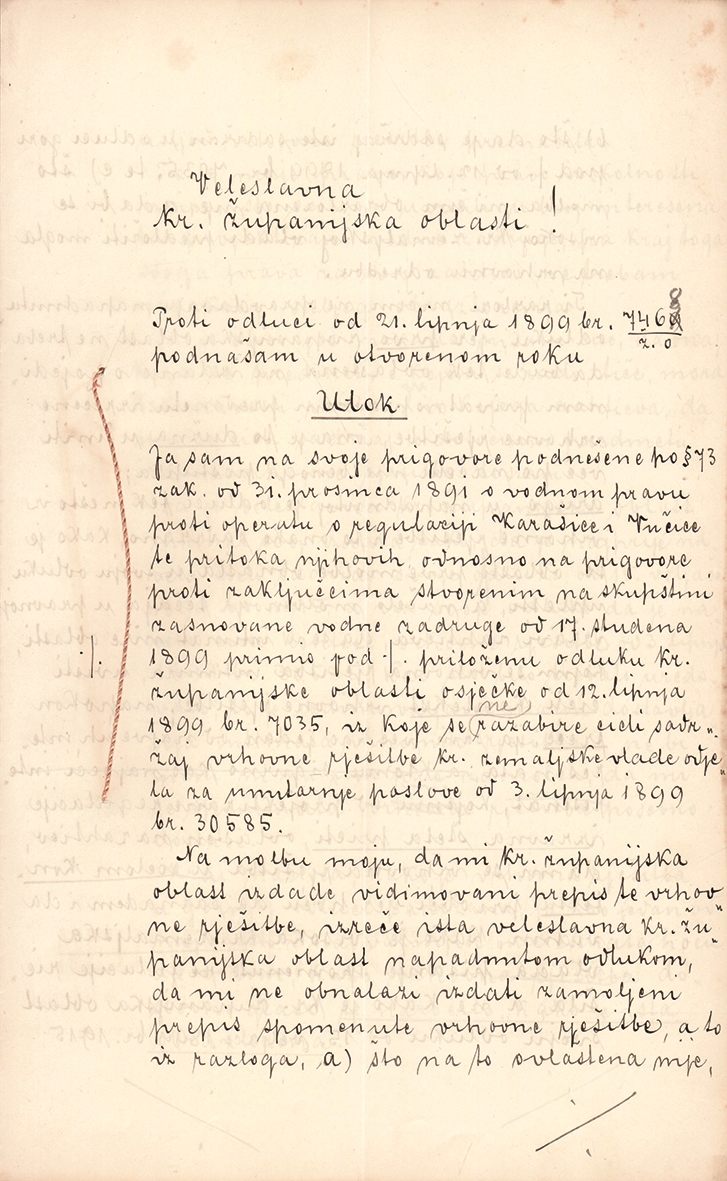 Veleslavna
kr. županijska oblasti!
Proti odluci od 21. lipnja 1899 br. 7468
z. o
podnašam u otvorenom roku
Utok
Ja sam na svoje prigovore podnešene po § 73
zak. od 31. prosinca 1891 o vodnom pravu
proti operatu o regulaciji Karašice i Vučice
te pritoka njihovih odnosno na prigovore
proti zaključcima stvorenim na skupštini
zasnovane vodne zadruge od 17. studena
·/. 1899 primio pod ·/. priloženu odluku kr.
županijske oblasti osječke od 12. lipnja
1899 br. 7035, iz koje se ne razabire cieli sadr„
žaj vrhovne rješitbe kr. zemaljske vlade odje„
la za unutarnje poslove od 3. lipnja 1899
br. 30585.
Na molbu moju, da mi kr. županijska
oblast izdade vidimovani prepis te vrhov„
ne rješitbe, izreče ista veleslavna kr. žu„
panijska oblast napadnutom odlukom,
da mi ne obnalazi izdati zamoljeni
prepis spomenute vrhovne rješitbe, a to
iz razloga, a) što na to ovlaštena nije,